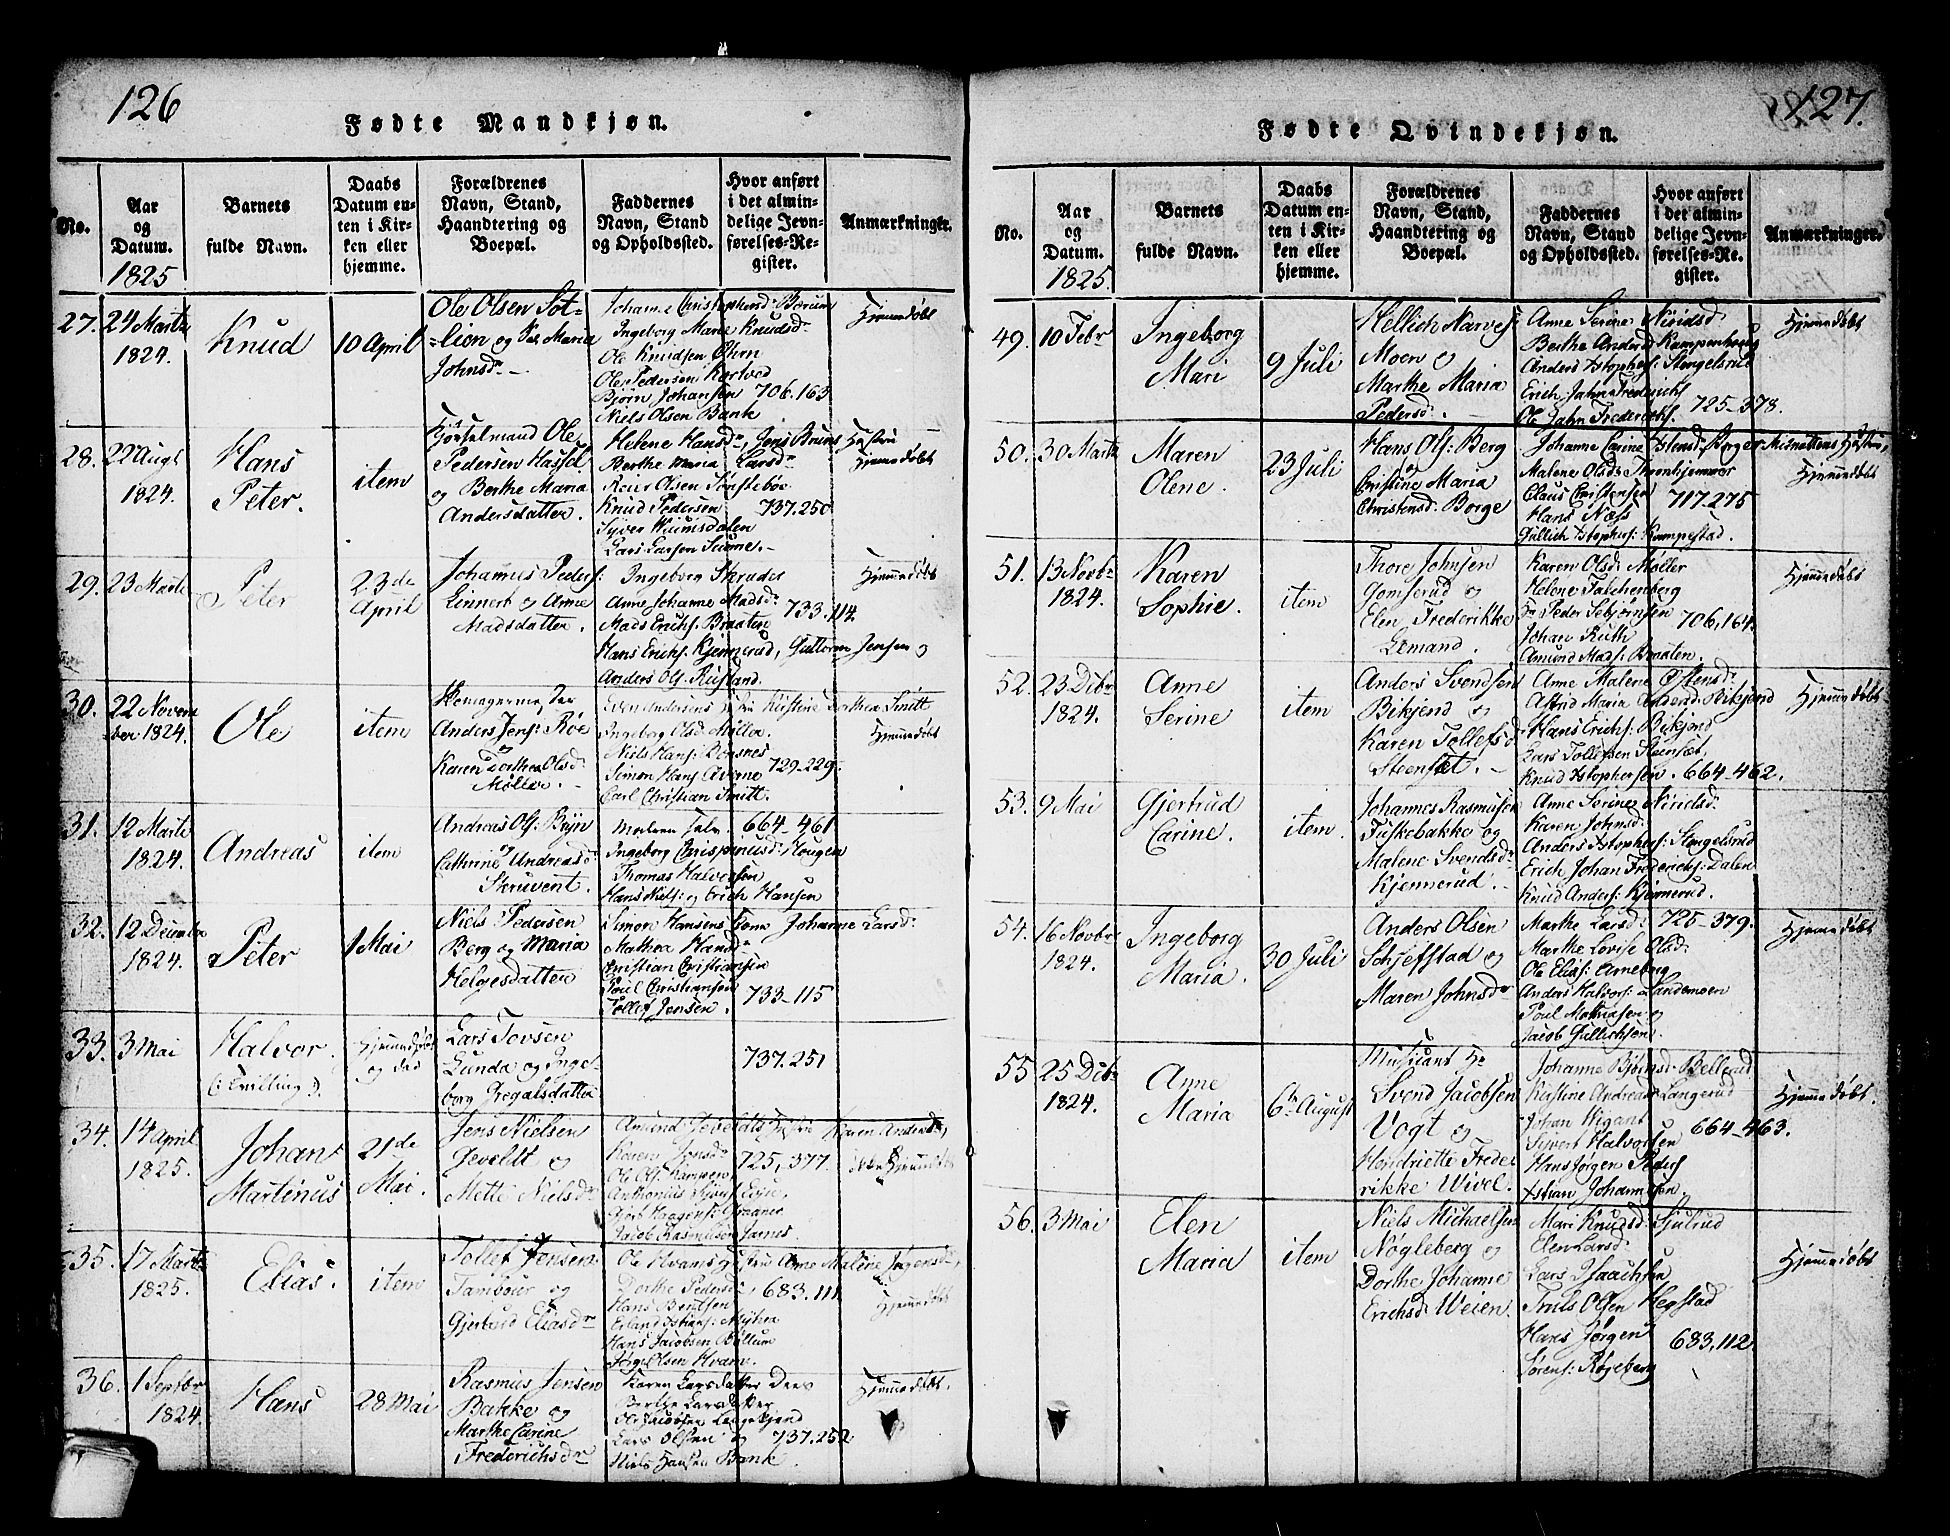 126
Fødte Mandkjøn.
No.
Aar og Datum.
1825
Barnets fulde Navn.
Daabs Datum enten i Kirken eller hjemme.
Forældrenes Navn, Stand, Haandtering og Boepæl.
Faddernes Navn, Stand og Opholdssted.
Hvor anført i det almindelige Jevnførelses-Register.
Anmærkninger.
27.
24 Martz
1824.
Knud
10 April
Ole Olsen
og Maria
Johnsdr
Ingeborg Marie Knudsdr
Ole Knudsen
Ole Pedersen Kortved
Bjørn Johansen
Niels Olsen Bank
706.163
Hjemmedøbt
28.
22 Augt
1824.
Hans
Peter.
item
Ole
Pedersen Hassel
og Berthe Maria
Andersdatter.
Helene Hansdr, Jens Bruns Hustru
Berthe Maria Larsdr
Reier Olsen Sønstebøe
Knud Pedersen
Syver Wiumsdalen
Lars Larsen Sumne.
737.250
Hjemmedøbt
29.
23 Marts
Peter
23de
April
Johannes Peders:
Linnert og Anne
Madsdatter.
Ingeborg Skrader
Anne Johanne Madsdr
Mads Erichs: Braaten
Hans Erichs: Kjennerud, Guttorm Jensen og
Anders Ols: Rustand.
733.114.
Hjemmedøbt
30.
22 Novem
ber 1824.
Ole
item
Anders Jens: Røe
og
Karen Dorthea Olsdr
Møller.
Even Andersens Hustru Kirstine Dorthea Smitt
Ingeborg Olsdr Møller.
Niels Hans:
Simon Hans:
Carl Christian Smitt.
729-229.
Hjemmedøbt
31.
12 Martz
1824.
Andreas
item
Andreas Ols: Bryn
og
Cathrine Andreasdr
Skruvent.
Maleen
Ingeborg Chrispinusdr Hougen
Thomas Halvorsen
Hans Niels: og Erich Hansen
664-461
32.
12 Decembr
1824.
Peter
1 Mai
Niels Pedersen
Berg og Maria
Helgesdatter
Simon Hansens Kone Johanne Larsdr
Mathea Hansdr
Christian Christiansen
Poul Christiansen
Tollef Jensen.
733-115
33.
3 Mai
Halvor.
(: Tvilling :)
Hjemmedøbt
og død
Lars Tovsen
Lunda og Inge
borg Gregarsdatter
737.251
34.
14 April
1825.
Johan
Martinus
21de
Mai.
Jens Nielsen
Geveldt og
Mette Nielsdr
Amund Geveldts Hustru Karen Andersdr,
Karen Jonsdr
Ole Ols:
Jacob Rasmussen
725,377.
ikke Hjemmedøbt
35.
17 Martz
1825.
Elias.
item
Tollef Jensen
Tambour og
Gjertrud Eliasdr
Ole Hvams Hustru Anne Malene Jørgensdr,
Dorthe Pedersdr,
Hans Bentsen
Erland
Hans Jacobsen Bollum
Jørg: Olsen Hvam.
683.111
Hjemmedøbt
36.
1 Septbr
1824.
Hans
28 Mai
Rasmus Jensen
Bakke og
Marthe Carine
Frederichsdr
Karen Larsdatter
Berthe Larsdatter
Ole Jacobsen Langekjend
Lars Olsen og
Niels Hansen Bank.
737.252
Hjemmedøbt.
127.
Fødte Qvindekjøn.
No.
Aar og Datum.
1825.
Barnets fulde Navn.
Daabs Datum enten i Kirken eller hjemme.
Forældrenes Navn, Stand, Haandtering og Boepæl.
Faddernes Navn, Stand og Opholdssted.
Hvor anført i det almindelige Jevnførelses-Register.
Anmærkninger.
49.
10 Febr
Ingeborg
Mari
9 Juli
Hellich Narves:
Moen og
Marthe Maria
Pedersdr.
Anne Serine
Berthe Andersdr Kampenhoug
Anders Xstophers: Stengelsrud
Erich Jahn Frederichs
Ole Jahn Frederichs.
725-378.
Hjemmedøbt
50.
30 Martz
Maren
Olene.
23 Juli
Hans Ols: Berg
og
Cristine Maria
Christensdr Borge
Johanne Carine
Malene Olsdr Thronhjemmer
Claus Christensen
Hans Næss
Gullich Xstophers: Kampestad.
717.275
Hjemmedøbt
51.
13 Novbr
1824.
Karen
Sophie.
item
Thore Johnsen
Gomserud og
Elen Frederikke
Lemand.
Karen Olsdr Møller
Helene Falchenberg
Hr Peder Sebjørnsen
Johan Ruth
Amund Mads: Braaten.
706,164.
Hjemmedøbt
52.
23 Dcbr
1824.
Anne
Serine
item
Anders Svendsen
Bikjend og
Karen Tollefsdr
Steenset.
Anne Malene Østensdr
Astrid Maria Andersdr Bikjend
Hans Erichs: Bikjend
Lars Tollefsen Steenset,
Knud Xstophersen.
664-462.
Hjemmedøbt
53.
9 Mai
Gjertrud
Carine.
item.
Johannes Rasmussen
Fuskebakke og
Malene Svendsdr
Kjennerud.
Anne Serine
Karen Johnsdr
Anders Xstophers: Stengelsrud
Erich Johan Frederichs: Dalen
Knud Anders: Kjennerud.
54.
16 Novbr
1824.
Ingeborg
Maria.
30 Juli
Anders Olsen
Schjefstad og
Maren Johnsdr
Marthe Larsdr
Marthe Lovise Olsdr
Ole Elias: Arneberg
Anders Halvors: Landemoen
Poul Mathiasen og
Jacob Gullichsen.
725-379.
Hjemmedøbt
55
25 Dcbr
1824.
Anne
Maria
6te August
Musicant Hr
Svend Jacobsen
Vogt og
Hendriette Frede
rikke Wivel.
Johanne Bjørnsdr Bellerud
Kirstine Andreasdr Langerud
Johan Wigant
Sivert Halvorsen
Hans Jørgen Peders
Xstian Johannesen
664-463.
Hjemmedøbt.
56.
3 Mai
Elen
Maria
item
Niels Michaelsen
Nøgleberg og
Dorthe Johanne
Erichsdr Weien.
Mari Knudsdr Sjulrud
Elen Larsdr
Lars Isaachsen
Truls Olsen Hegstad
Hans Jørgen
Sørens: Røgeberg
683,112
Hjemmedøbt